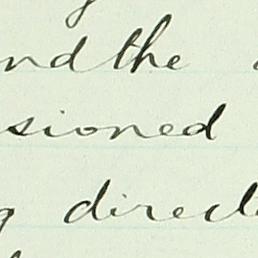 nd the
sioned
direct